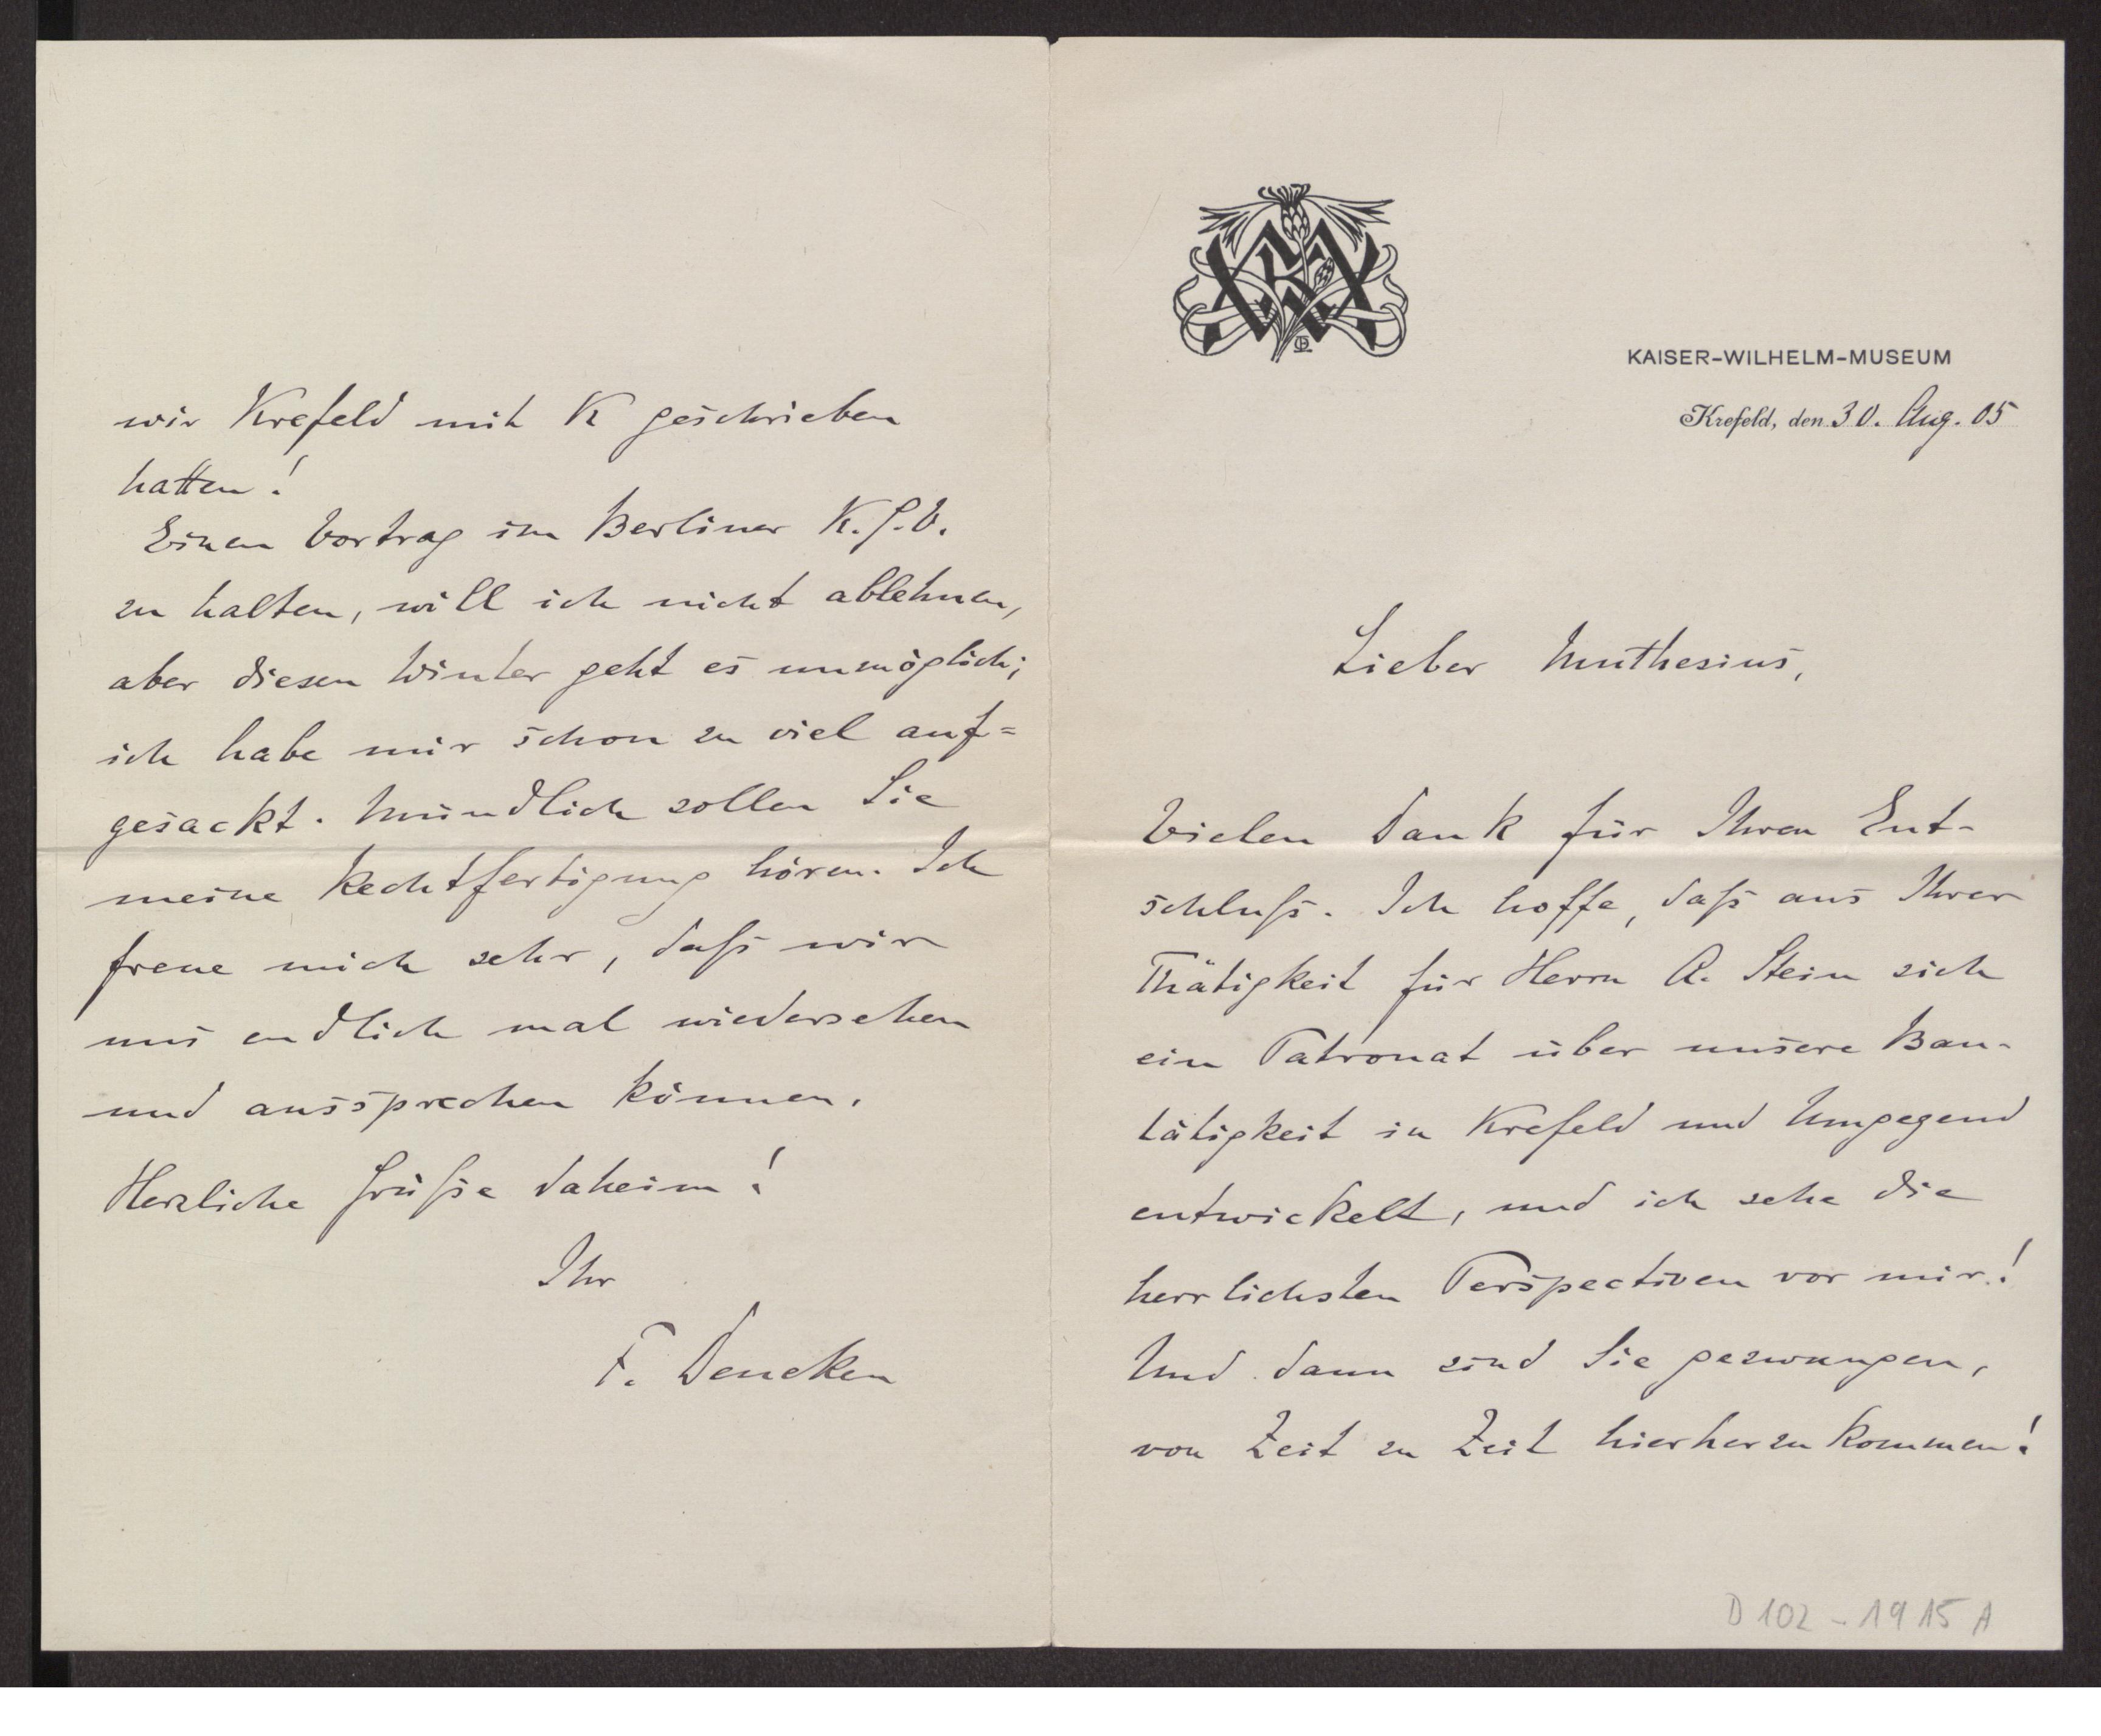 KAISER-WILHELM-MUSEUM
Krefeld, den 30. Aug. 05
Lieber Muthesius,
Vielen Dank für Ihren Ent-
schluß. Ich hoffe, daß aus Ihrer
Thätigkeit für Herrn A. Stein sich
ein Patronat über unsere Bau-
tätigkeit in Krefeld und Umgegend
entwickelt, und ich sehe die
herrlichsten Perspectiven vor mir!
Und dann sind Sie gezwungen,
von Zeit zu Zeit hierherzukommen!
D 102 - 1915 A
wir Krefeld mit K geschrieben
hatten!
Einen Vortrag im Berliner K.G.V.
zu halten, will ich nicht ablehnen,
aber diesen Winter geht es unmöglich;
ich habe mir schon zu viel auf=
gesackt. Mündlich sollen Sie
meine Rechtfertigung hören. Ich
freue mich sehr, daß wir
uns endlich mal wiedersehen
und aussprechen können.
Herzliche Grüße daheim!
Ihr
F. Deneken